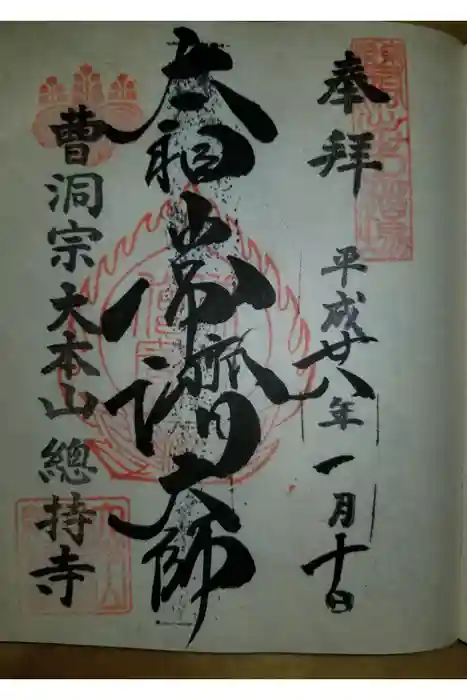 奉拝
平成廿八年一月十日
太祖常濟大師
曹洞宗大本山總持寺